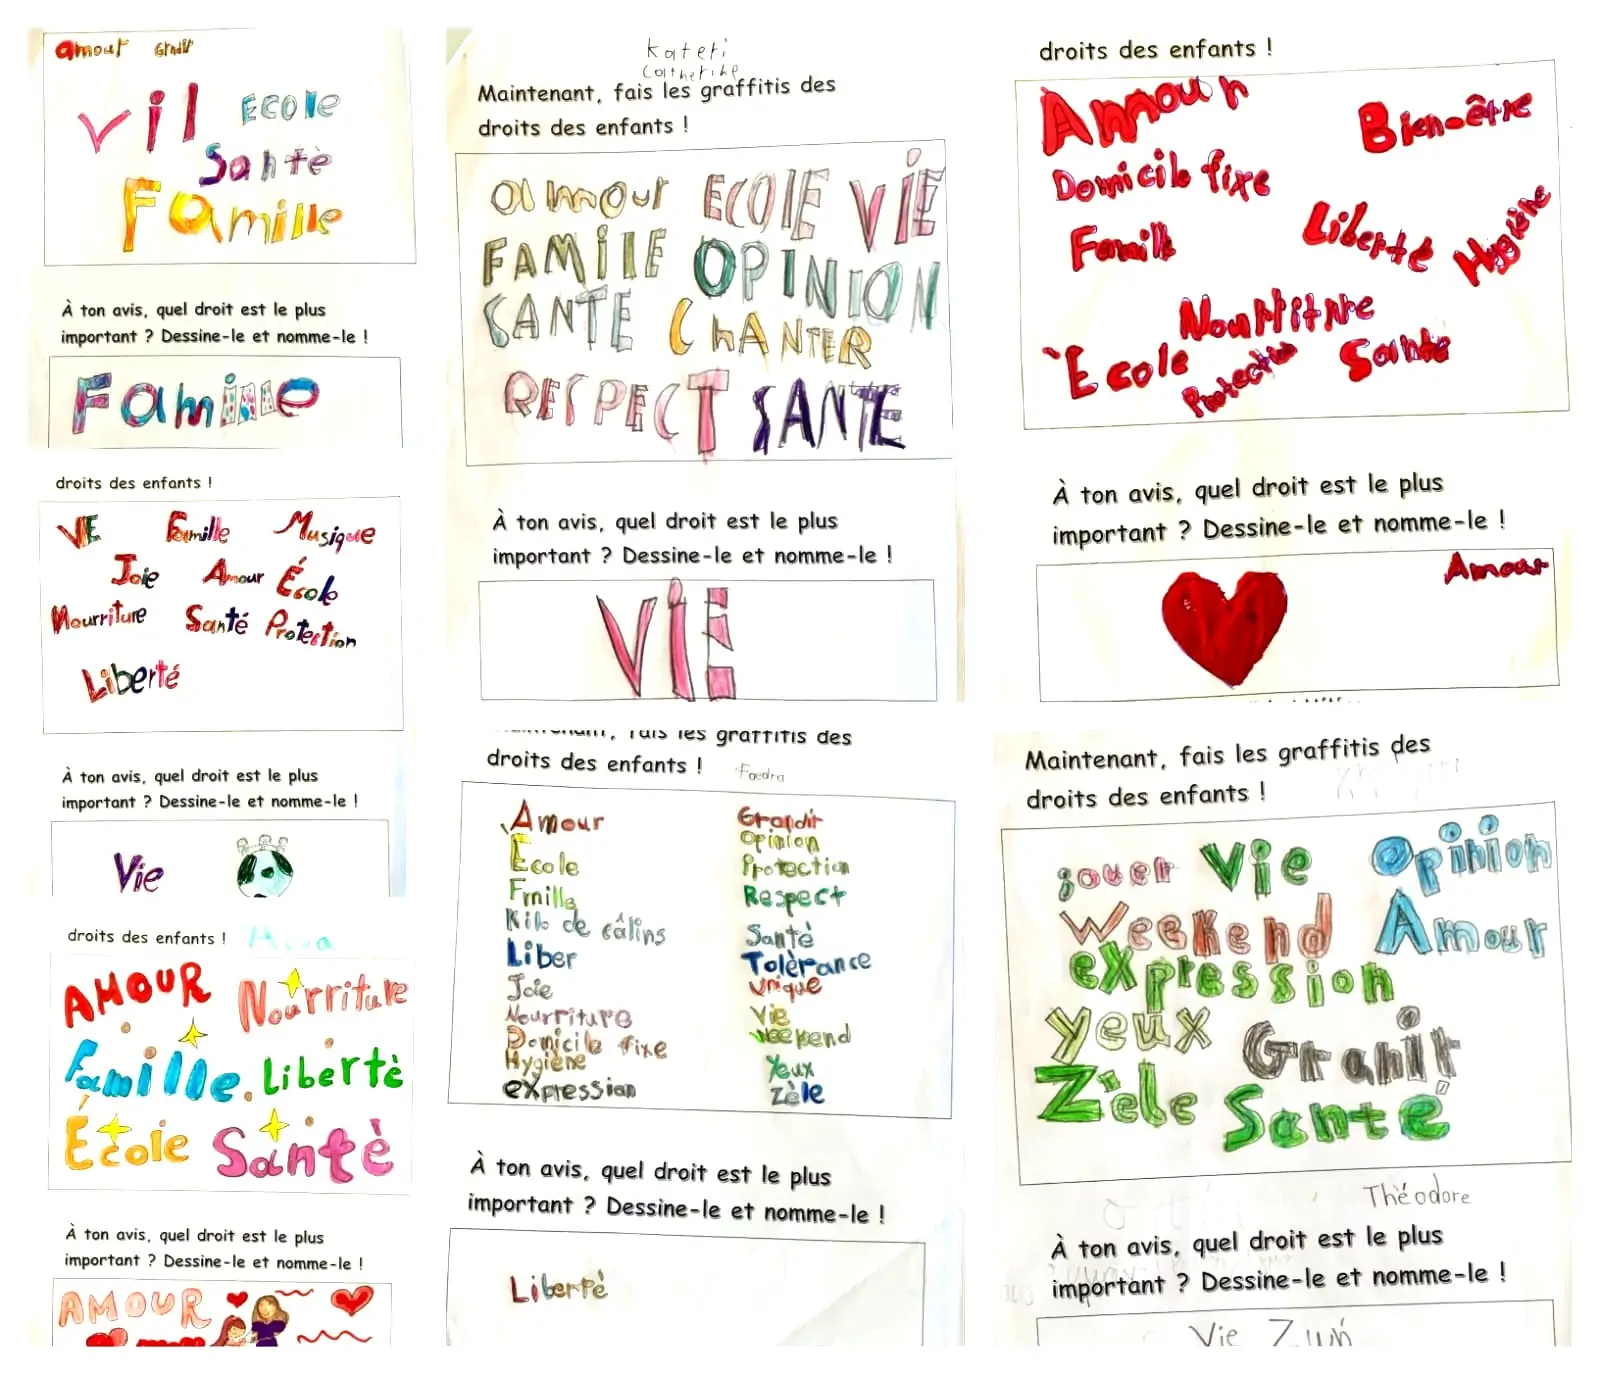 amour Grndir
vil ECOle
Santè
FAmille
À ton avis, quel droit est le plus
important ? Dessine-le et nomme-le !
FAmille
droits des enfants !
VIE Famille Musique
Joie Amour École
Nourriture Santé Protection
Liberté
À ton avis, quel droit est le plus
important ? Dessine-le et nomme-le !
Vie
droits des enfants !
AMOUR Nourriture
Famille. Libertè
École Santè
À ton avis, quel droit est le plus
important ? Dessine-le et nomme-le !
AMOUR
Kateri
Catherine
Maintenant, fais les graffitis des
droits des enfants !
amour ECOlE ViE
FAMilE OPINION
SANTE ChANTER
RESPECT SANTE
À ton avis, quel droit est le plus
important ? Dessine-le et nomme-le !
ViE
fais les graffitis des
droits des enfants ! Faedra
Amour
École
Fmille
Kilo de câlins
Liber
Joie
Nourriture
Domicile fixe
Hygiène
expression
Grandir
Opinion
Protection
Respect
Santè
Tolèrance
Unique
Vie
weekend
Yeux
Zèle
À ton avis, quel droit est le plus
important ? Dessine-le et nomme-le !
Libertè
droits des enfants !
Amour Bien-être
Domicile fixe
Famille Liberté Hygiène
Nourriture
École Protection Santé
À ton avis, quel droit est le plus
important ? Dessine-le et nomme-le !
Amour
Maintenant, fais les graffitis des
droits des enfants !
jouer Vie Opinion
Weekend Amour
expression
yeux
Zèle Santé
Théodore
À ton avis, quel droit est le plus
important ? Dessine-le et nomme-le !
Vie